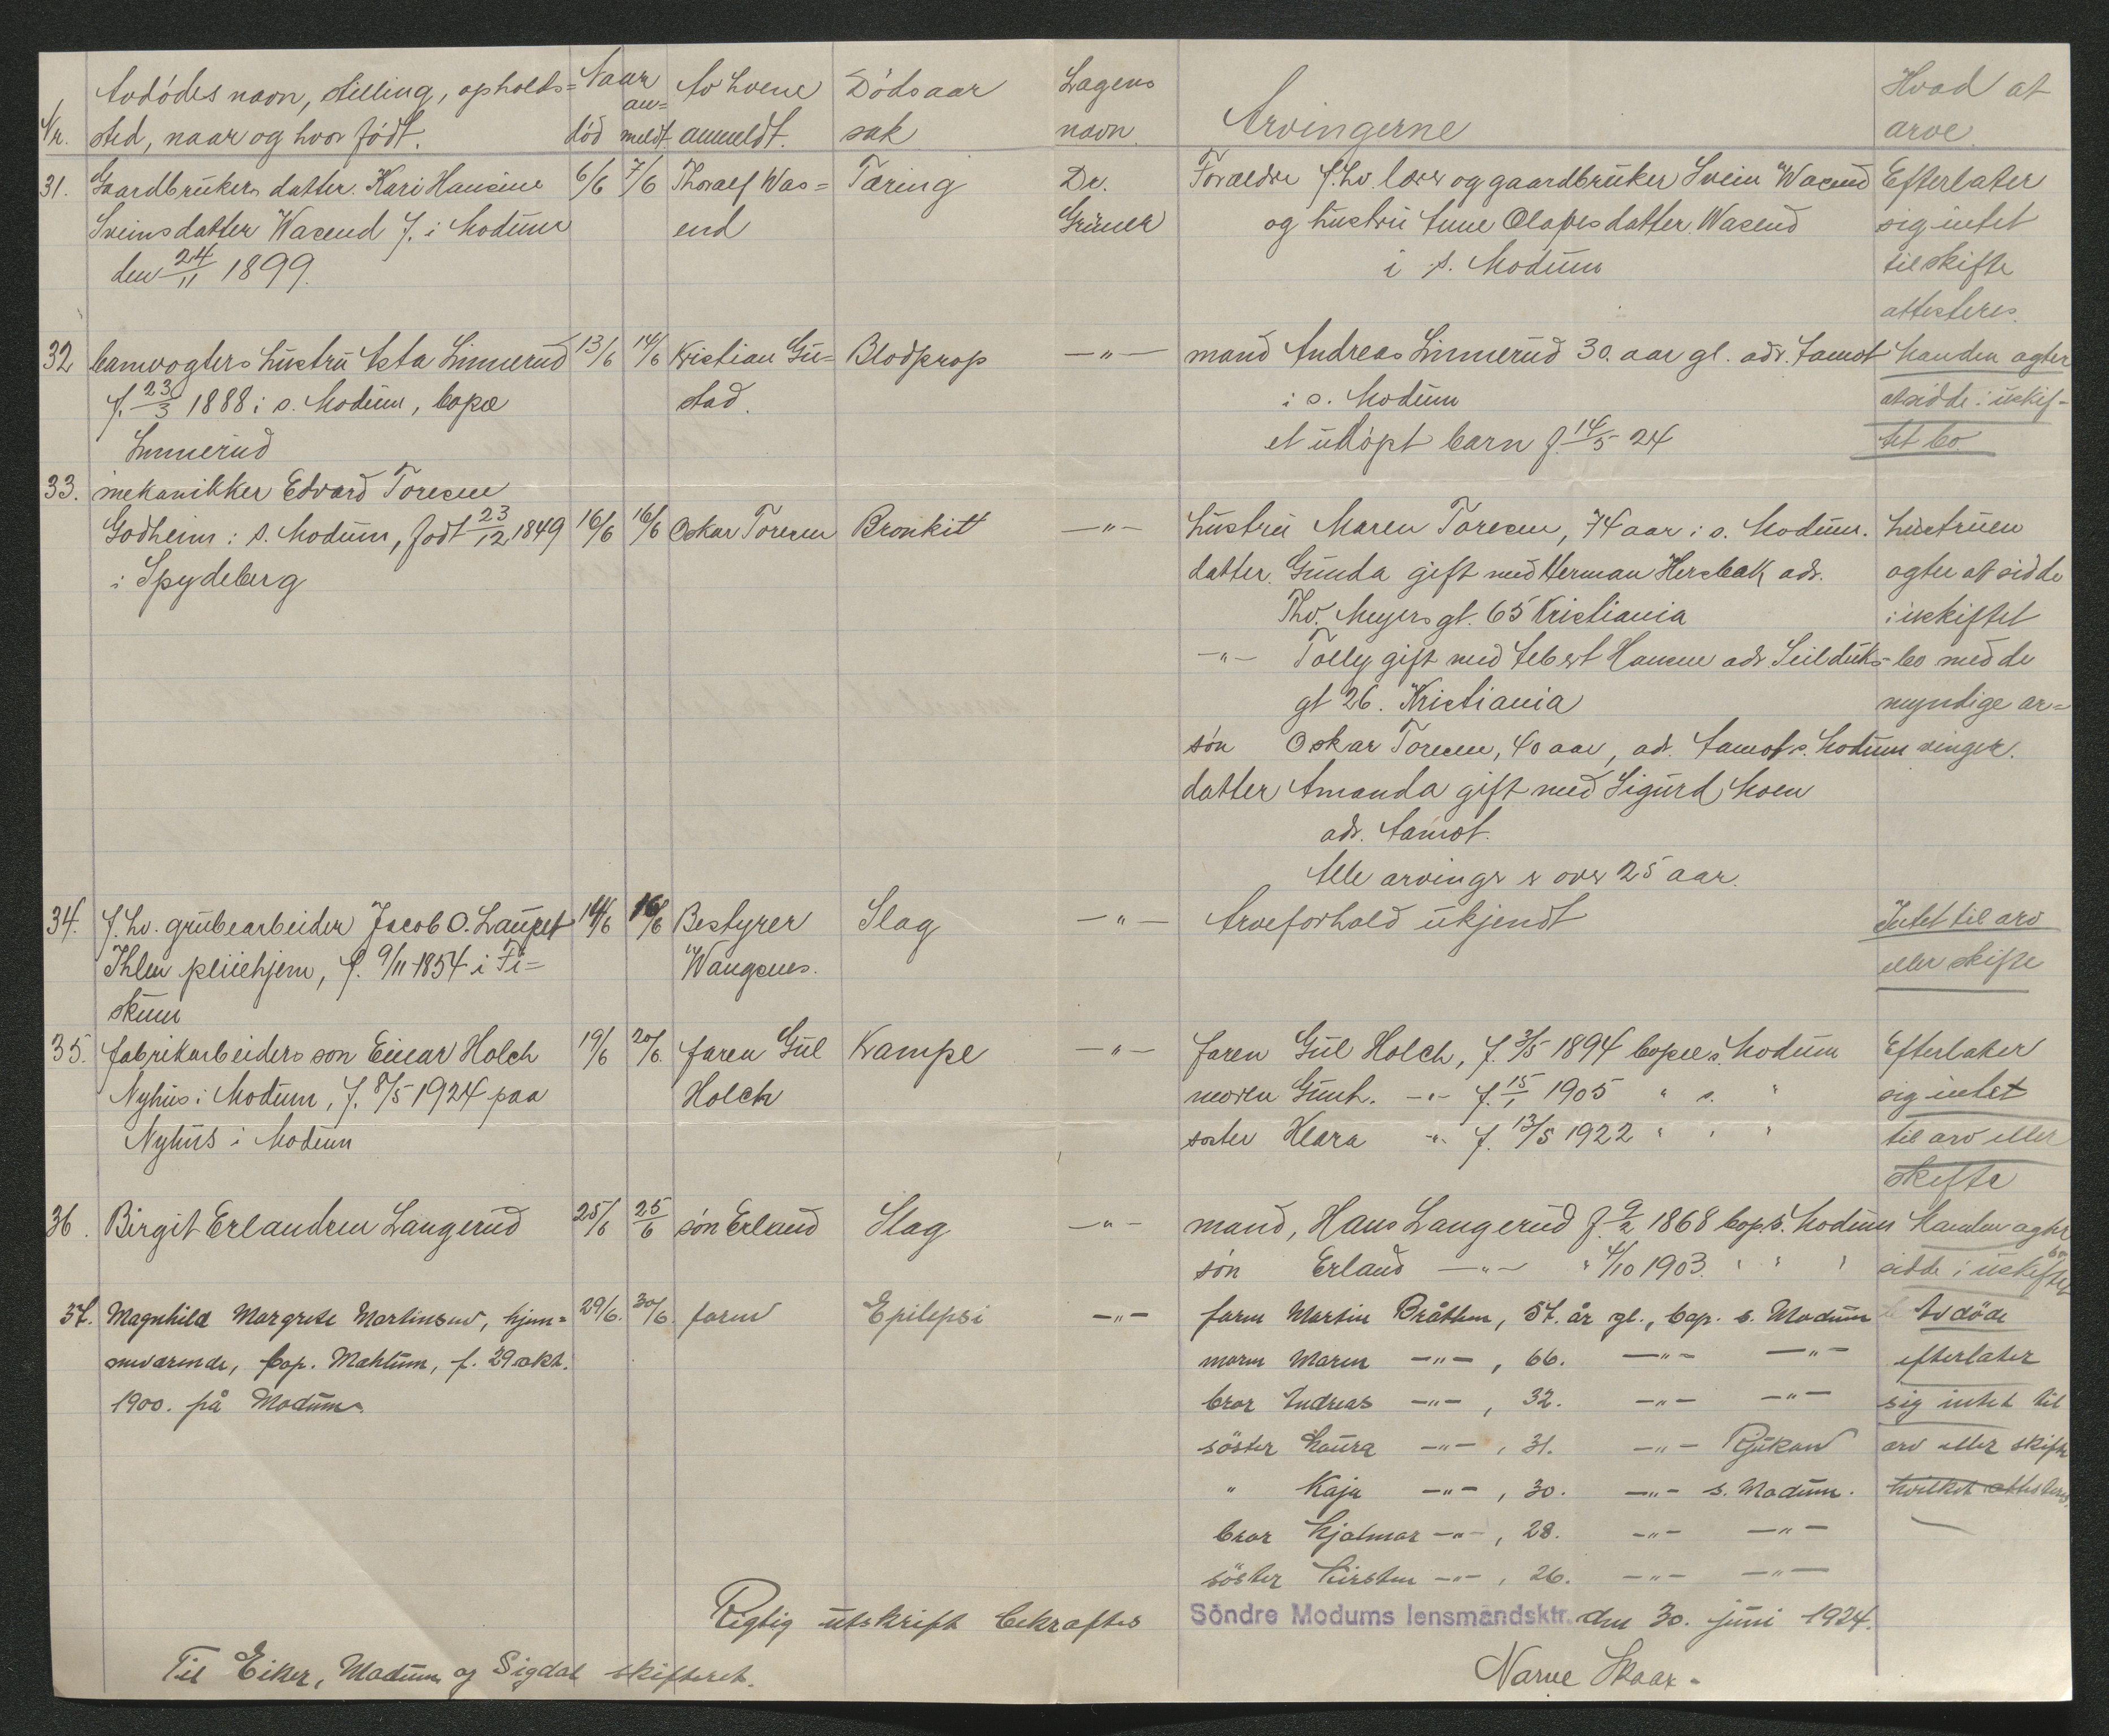 Avdödes navn, stilling, opholds= Naar Av hvem Dödsaar Lægens Hvad at
Nr. sted, naar og hvor födt. död an=meldt anmeldt. sak navn Arvingerne arve
31. Gaardbrukers datter Kari Hansine 6/6 7/6 Thoralf Was= Tæring Dr. Forældre f.hv. lærer og gaardbruker Svein Wasend Efterlater
Sveinsdatter Wasend f. i Modum end og hustru Anne Olavesdatter Wasend sig intet
den 24/11 1899. i s. Modum til skifte
attesteres.
32 banevogters hustru Asta Linnerud 13/6 14/6 Kristian Gu= Blodprop —"— mand Andreas Linnerud 30 aar gl. adr. Aamot Manden agter
f. 23/3 1888 i s. Modum, bopæl stad. i s. Modum at sidde i uskif-
Linnerud et udöpt barn f. 14/5 - 24 tet bo
33. mekanikker Edvard Toresen
Godheim i s. Modum, född 23/12 1849 16/6 16/6 Oskar Toresen Bronkit —"— hustru Maren Toresen, 74 aar i s. Modum. hustruen
i Spydeberg datter Gunda gift med Herman Hersbak adr. agter at sidde
Thv. Meyers gt. 65 Kristiania i uskiftet
—"— Tolly gift med Albert Hansen adr. Seilduks- bo med de
gt 26. Kristiania myndige ar=
sön Oskar Toresen, 40 aar, adr. Aamot s. Modum vinger.
datter Amanda gift med Sigurd Moen
adr. Aamot.
Alle arvinger er over 25 aar.
34. f. hv. grubearbeider Jacob O. Laupet 14/6 16/6 Bestyrer Slag —"— Arveforhold ukjendt Intet til arv
Ihlen pleiehjem, f. 9/11-1854 i Fi= Wangsnes. eller skifte
skum
35. fabrikarbeiders sön Einar Holch 19/6 20/6. faren Gul Krampe —"— faren Gul Holch, f. 3/5 1894 bopæl s. Modum Efterlater
Nyhus i Modum, f. 8/5 1924 paa Holch moren Gunh. —"— f. 15/1 1905 " s. " sig intet
Nyhus i Modum söster Klara —"— f. 13/5 1922 " " " til arv eller
skifte
36. Birgit Erlandsen Langerud 25/6 25/6 sön Erland Slag —"— mand, Hans Langerud f. 9/2 1868 bop. s. Modum Manden agter
sön Erland —"— " 4/10 1903. " " " sidde i uskiftet bo
37. Magnhild Margrete Martinsen, hjem= 29/6. 30/6. faren Epilepsi —"— faren Martin Bråthen, 57. år gl., bop. s. Modum Avdöde
meværende, bop. Mæhlum, f. 29 okt. moren Maren —"—, 66. —"— —"— efterlater
1900. på Modum. bror Andreas —"—, 32. —"— —"— sig intet til
söster Laura —"—, 31. —"— Rjukan arv eller skifte
" Kaja —"—, 30. —"— s. Modum. hvilket attesteres.
bror Hjalmar —"—, 28. —"— —"—
söster Kirsten —"—, 26. —"— —"—
Rigtig utskrift bekræftes Söndre Modums lensmandsktr. den 30. juni 1924.
Til Eiker, Modum og Sigdal skifteret. Narve Skaar.